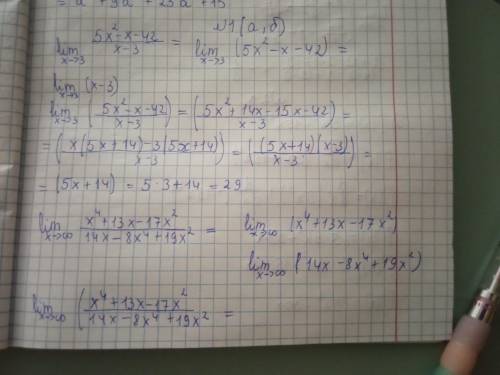 = a + 9a + 23a + 15
№1 (а, б)
lim x→3 (5x²-x-42)/(x-3) = lim x→3 (5x²-x-42) =
lim x→3 (x-3)
lim x→3 ((5x²-x-42)/(x-3)) = ((5x²+14x-15x-42)/(x-3)) =
= ((x(5x+14)-3(5x+14))/(x-3)) = (((5x+14)(x-3))/(x-3)) =
= (5x+14) = 5·3+14 = 29
lim x→∞ (x⁴+13x-17x²)/(14x-8x⁴+19x²) = lim x→∞ (x⁴+13x-17x²)
lim x→∞ (14x-8x⁴+19x²)
lim x→∞ ((x⁴+13x-17x²)/(14x-8x⁴+19x²) =